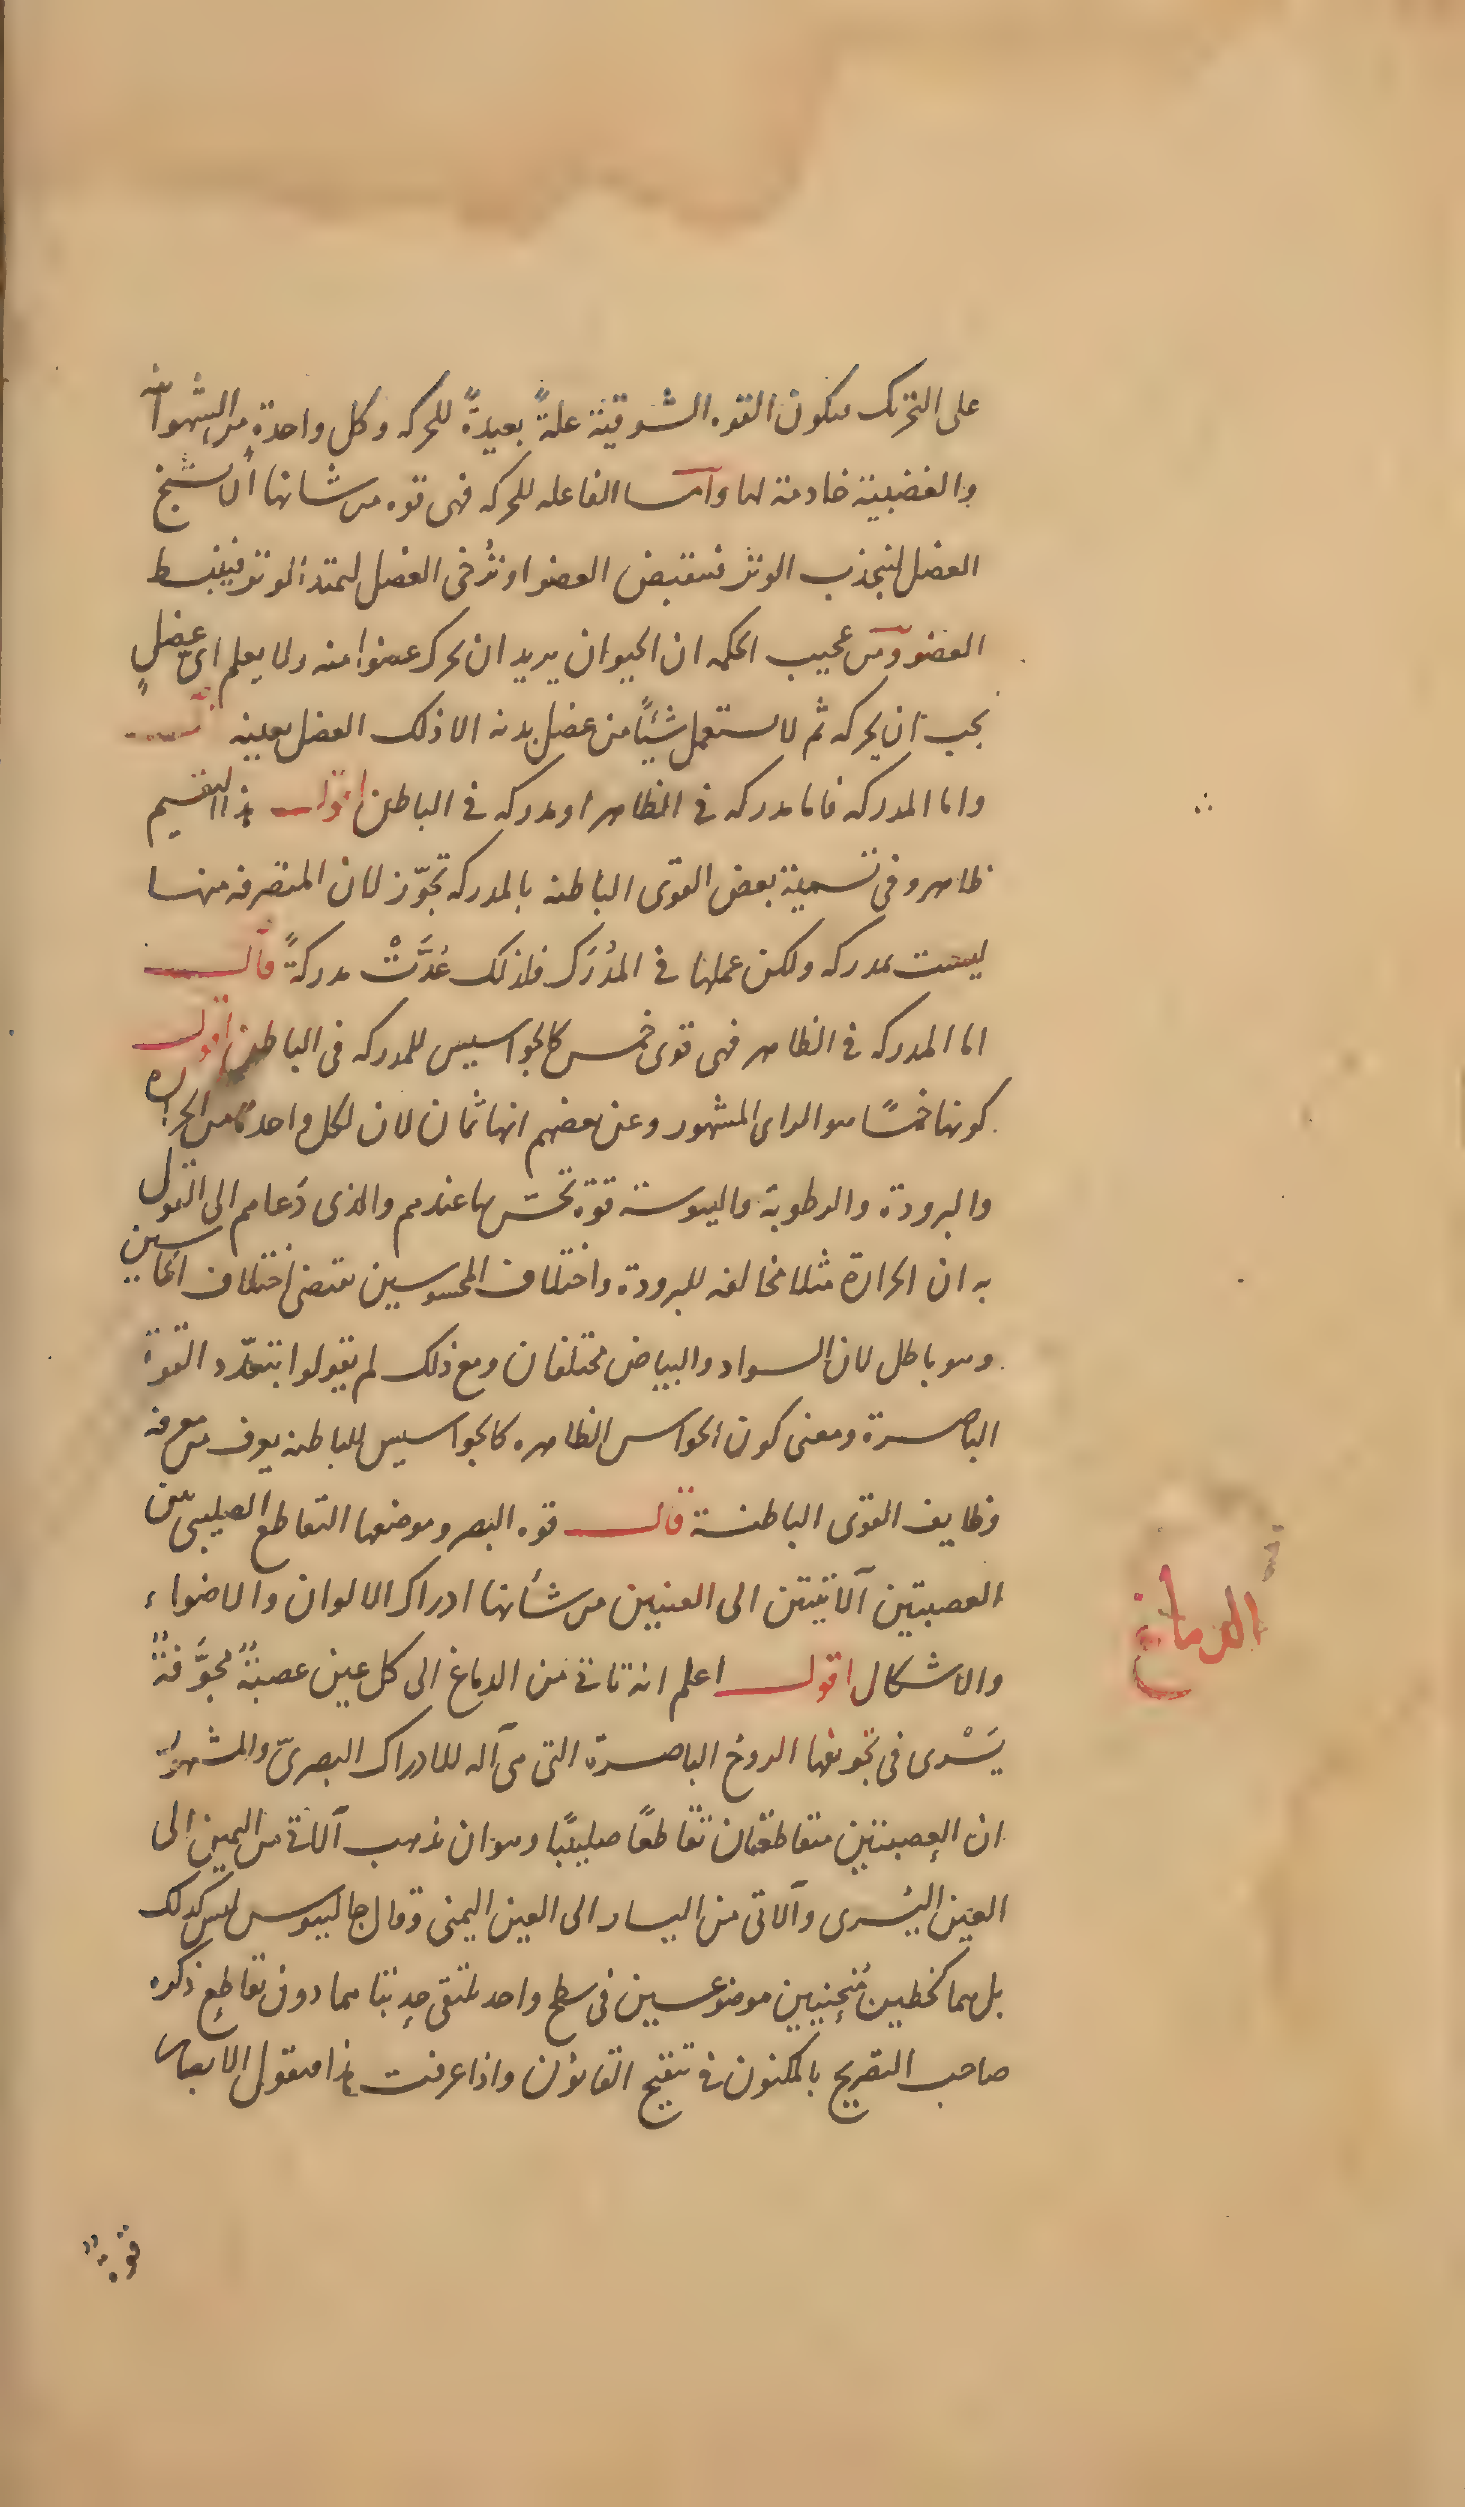 على التحريك فيكون القوه الشوقية علةً بعيدةً للحركه وكل واحدةٍ من الشهوانية
والغضبية خادمة لها وأما الفاعله للحركه فهى قوه من شانها أن تشنج
العضل لينجذب الوتر فينقبض العضو او ترُخى العضل ليمتد الوتر فينبسط
العضو ومن عجيب الحكمه ان الحيوان يريد ان يحرك عضوا منه ولا يعلم اى عضلٍ
يجب ان يحركه ثم لا يستعمل شيئًا من عضل بدنه الا ذلك العضل بعينه قال
واما المدركه فاما مدركه فى الظاهر او مدركه فى الباطن اقول هذا التقسيم
ظاهر وفى تسمية بعض القوى الباطنه بالمدركه تجوّز لان المتصرفه منها
ليست بمدركه ولكن عملها فى المدُرَك فلذلك عُدَّتْ مدركةً قال
اما المدركه فى الظاهر فهى قوى خمس كالجواسيس للمدركه فى الباطن اقول
كونها خمسًا هو الراى المشهور وعن بعضهم انها ثمان لان لكل واحد من الحرارة
والبرودة والرطوبة واليبوسة قوة تحسّ بها عندهم والذى دَعاهم الى القول
به ان الحرارة مثلا مخالفه للبرودة واختلاف المحسوسين يقتضى اختلاف الحاسين
وهو باطل لان السواد والبياض مختلفان ومع ذلك لم يقولوا بتعدّد القوة
الباصرة ومعنى كون الحواس الظاهره كالجواسيس للباطنه يعرف من معرفه
وظايف القوى الباطنة قال قوه البصر وموضعها التقاطع الصليبى بين
العصبتين الآتيتين الى العينين من شأنها ادراك الالوان والاضواء
والاشكال اقول اعلم انه تاتى من الدماغ الى كل عين عصبةٌ مجوَّفةٌ
يَسْرى فى تجويفها الروحُ الباصرة التى هى آله للادراك البصرىّ والمشهور
ان العصبتين متقاطعتان تقاطعًا صليبيًا وهو ان يذهب الآتى من اليمين الى
العين اليُسرى والآتى من اليسار الى العين اليمنى وقال جالينوس ليس كذلك
بل هما كخطين مُنحنيين موضوعين فى سطح واحد تلتقى حدبتاهما دون تقاطعٍ ذكره
صاحب التصريح بالمكنون فى تنقيح القانون واذا عرفت هذا فنقول الابصار
الدماغ
قوةٌ